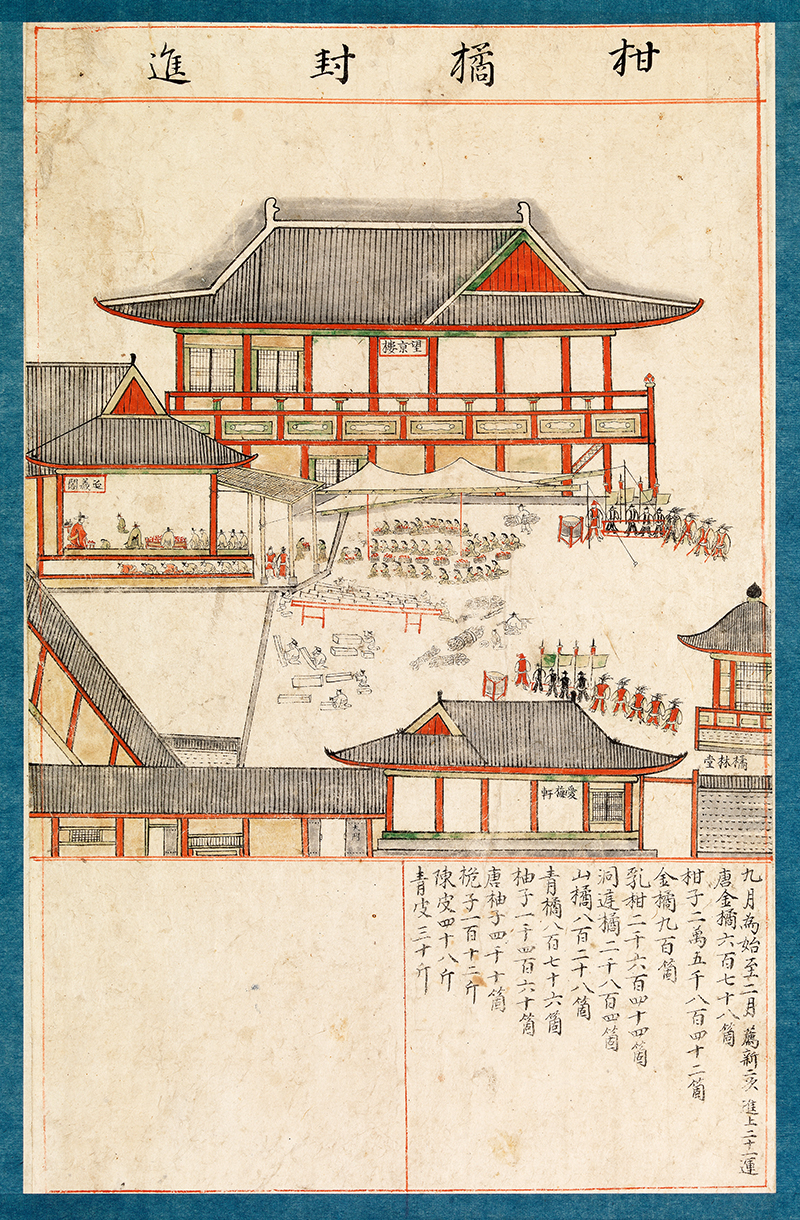 柑橘封進
望京樓
延羲閣
橘林堂
愛梅軒
大門
九月為始至二月 薦新二次 進上二十一運
唐金橘六百七十八箇
柑子二萬五千八百四十二箇
金橘九百箇
乳柑二千六百四十四箇
洞庭橘二千八百四箇
山橘八百二十八箇
青橘八百七十六箇
柚子一千四百六十箇
唐柚子四千十箇
梔子一百十二斤
陳皮四十八斤
青皮三十斤